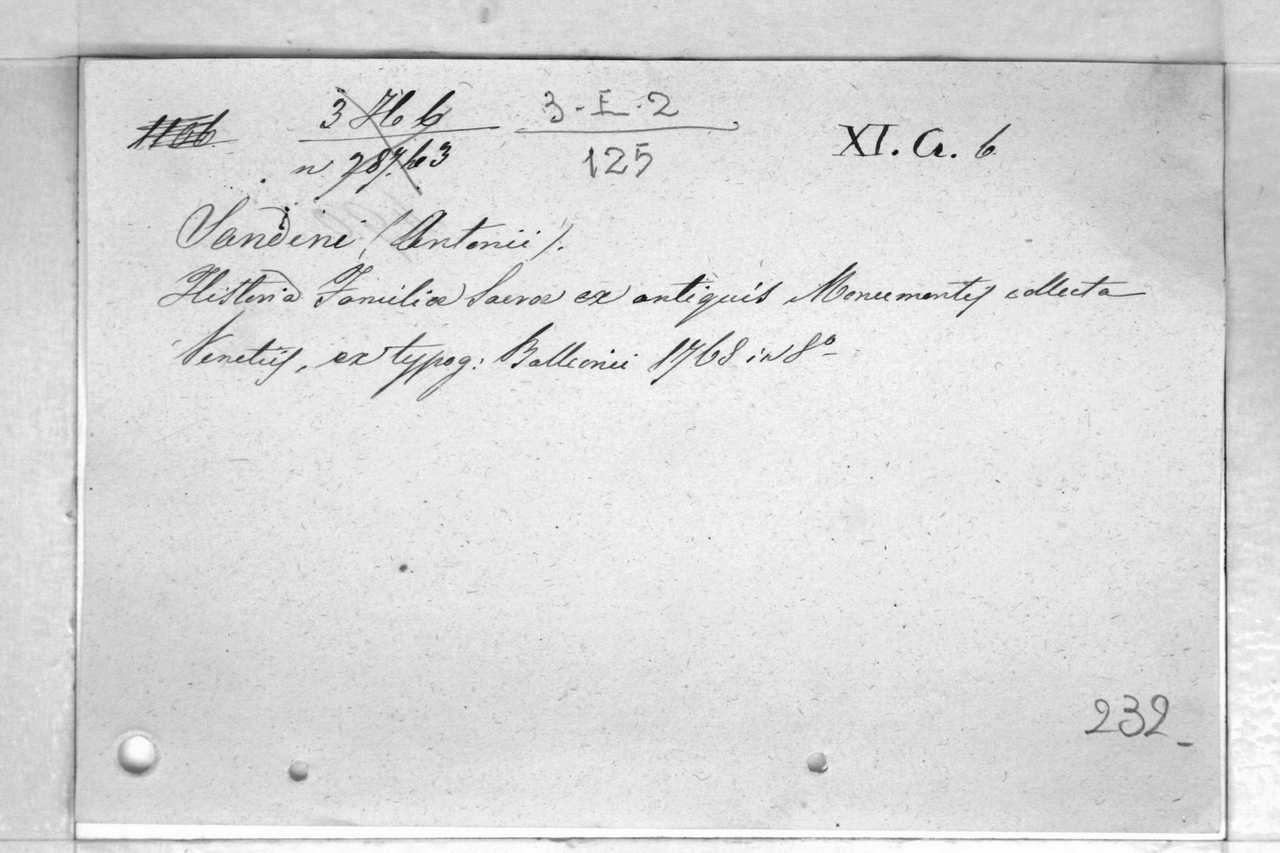 1166 3 H b 3-E-2 XI. G. 6
n 28763 125
Sandini (Antonii).
Historia Familiæ Sacræ ex antiquis Monumentis collecta
Venetiis, ex typog: Balleonii 1768 in 8º
232